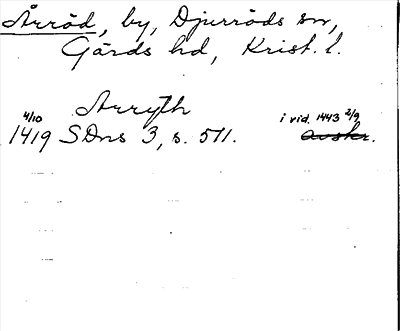 Årröd, by, Djurröds sn,
Gärds hd, Krist. l.
Arryth
4/10 1419 SDns 3, s. 571. i vid. 1443 2/9
avskr.